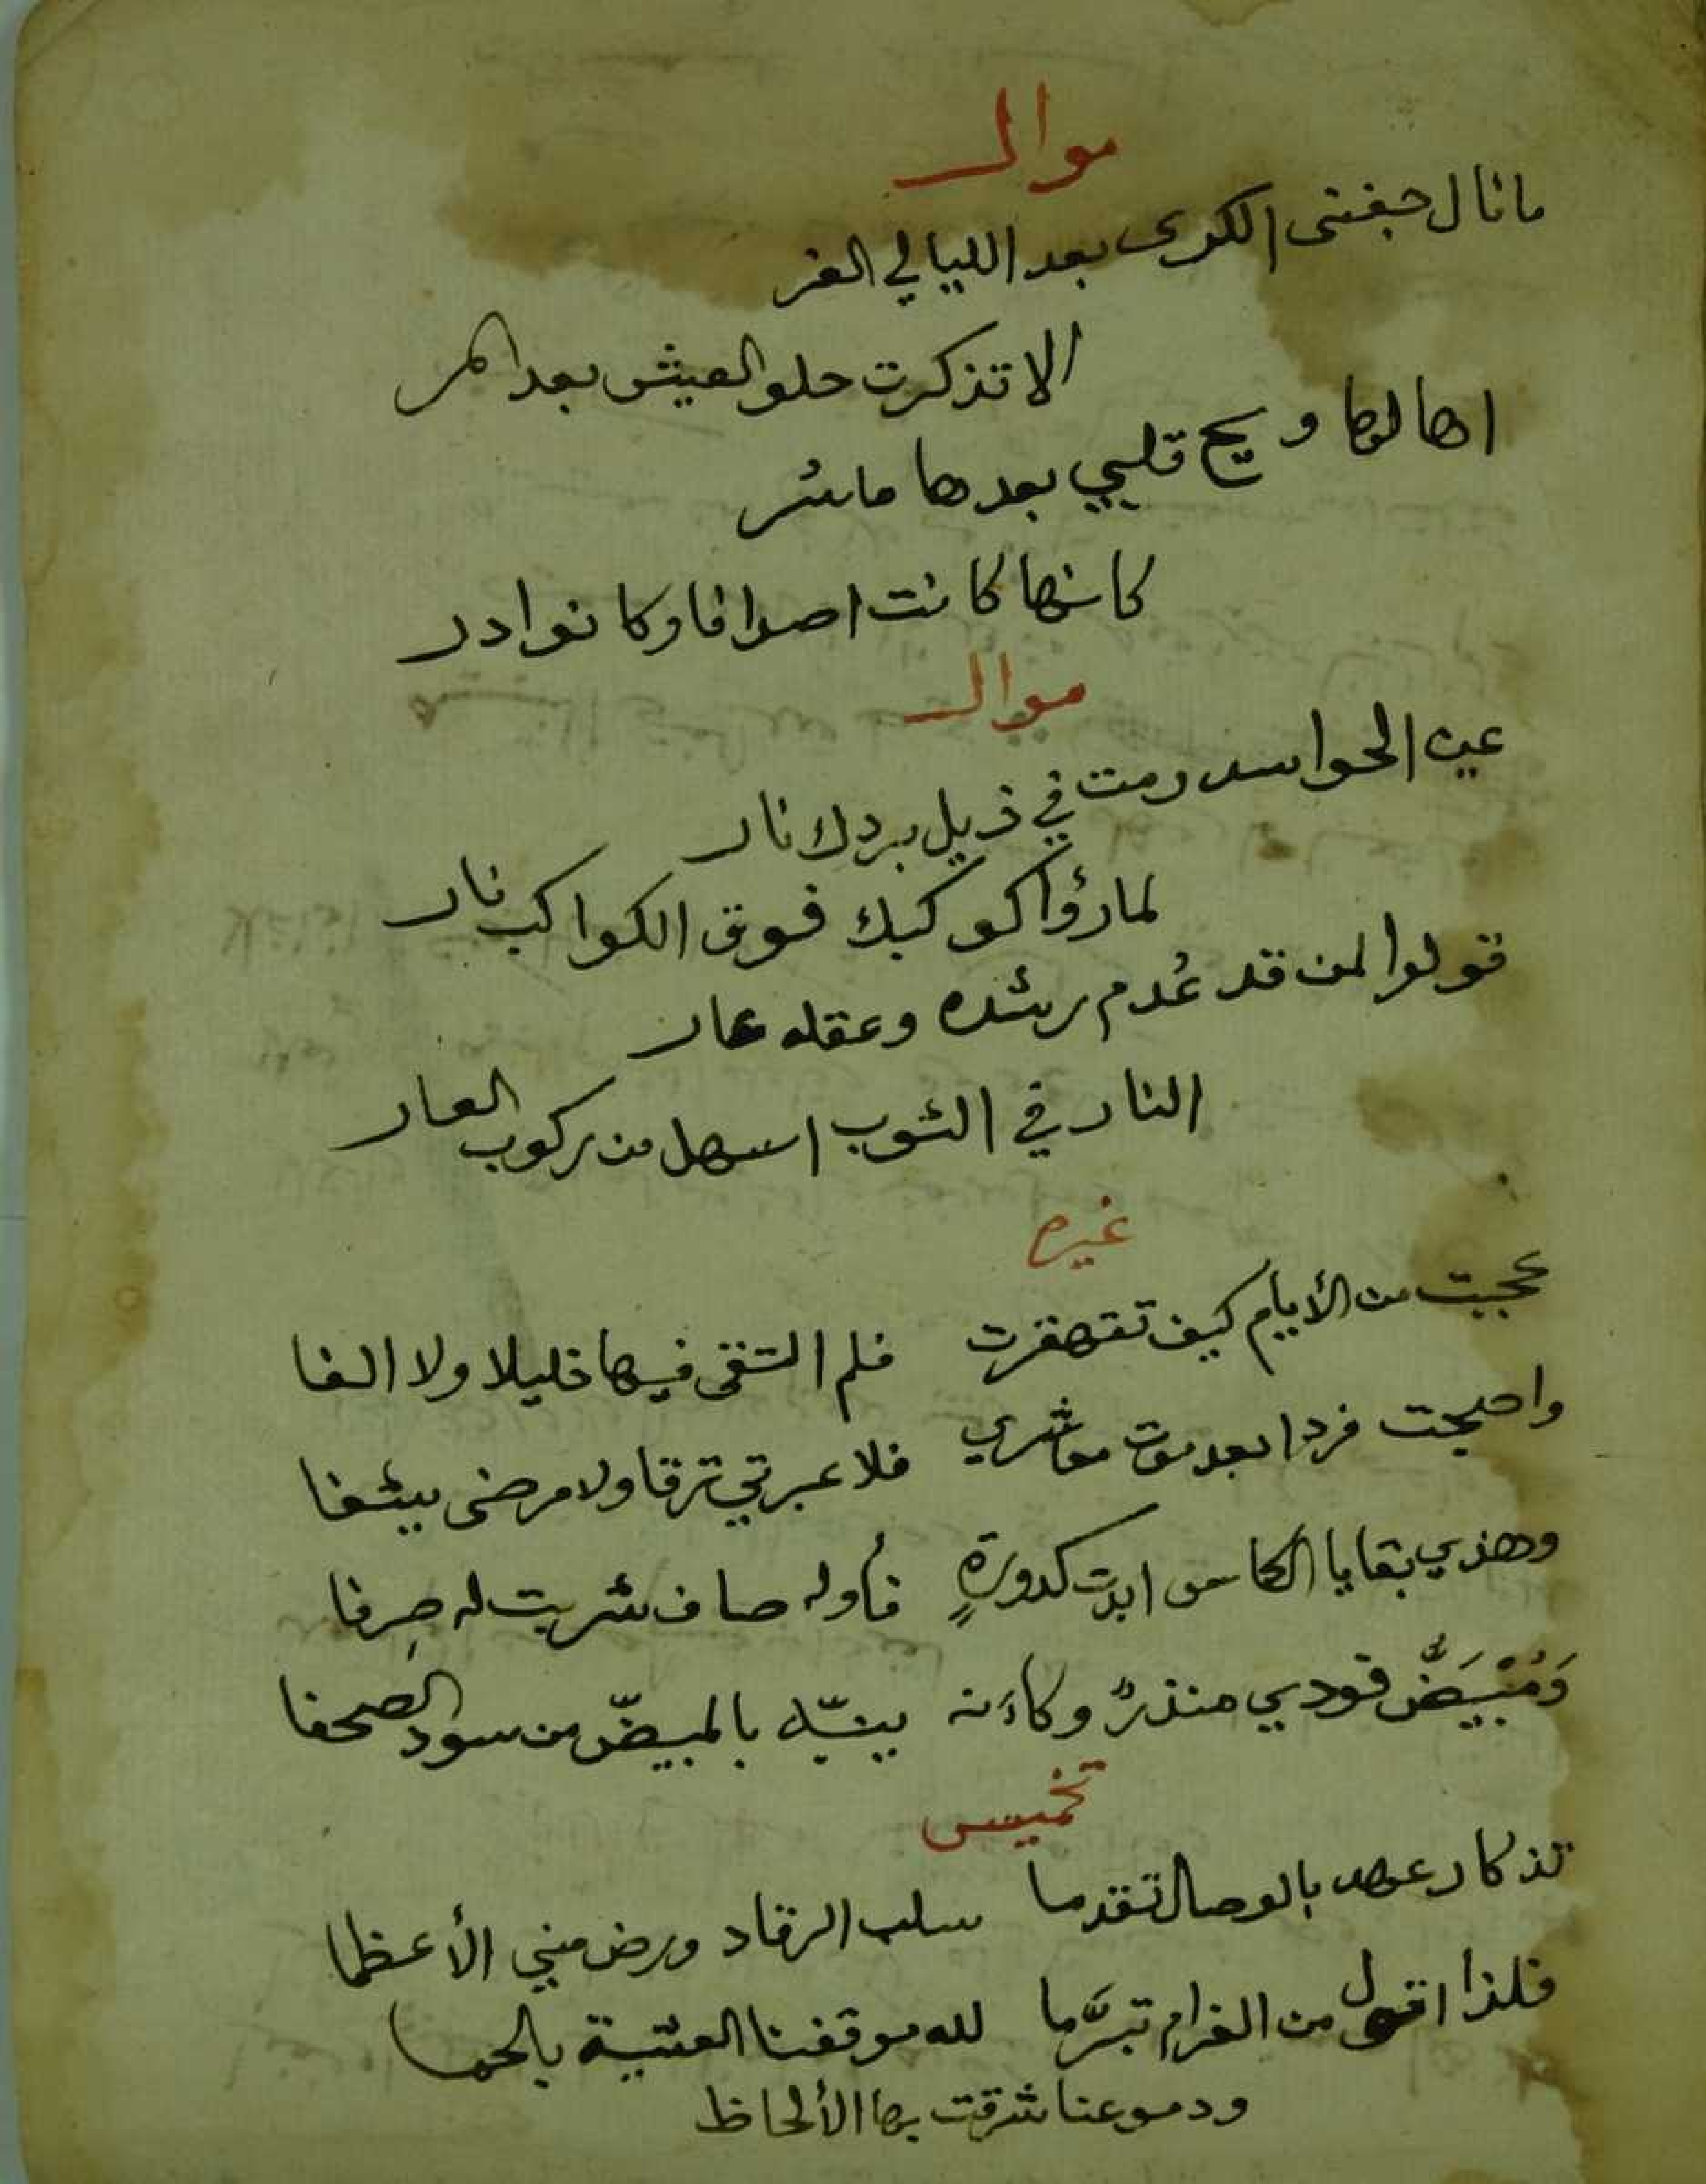 موال
ما نال جفنى الكرى بعد الليالي الغر
الا تذكرت حلو العيش بعد المر
اها لها ويح قلبي بعدها ما شر
كانها كانت اصدافا وكانوا در
موال
عين الحواسد رمت في ذيل بردك نار
لما رؤا كوكبك فوق الكواكب نار
قولوا لمن قد عُدم رشده وعقله عار
النار في الثوب اسهل من ركوب العار
غيره
عجبت من الأيام كيف تقهقرت فلم التقى فيها خليلا ولا الفا
واصبحت فردا بعد موت معاشري فلا عبرتي ترقا ولا مرضى يشفا
وهذي بقايا الكاس ابدت كدورةٍ فأوله صاف شربت له صِرفا
وَمُبْيَضَّ فودي منذرٌ وكاءنه ينبّه بالمبيضّ من سود الصحفا
تخميس
تذكار عهد بالوصال تقدما سلب الرقاد ورض مني الأعظما
فلذا اقول من الغرام تبرَّما لله موقفنا العشية بالحما
ودموعنا شرقت بها الألحاظ